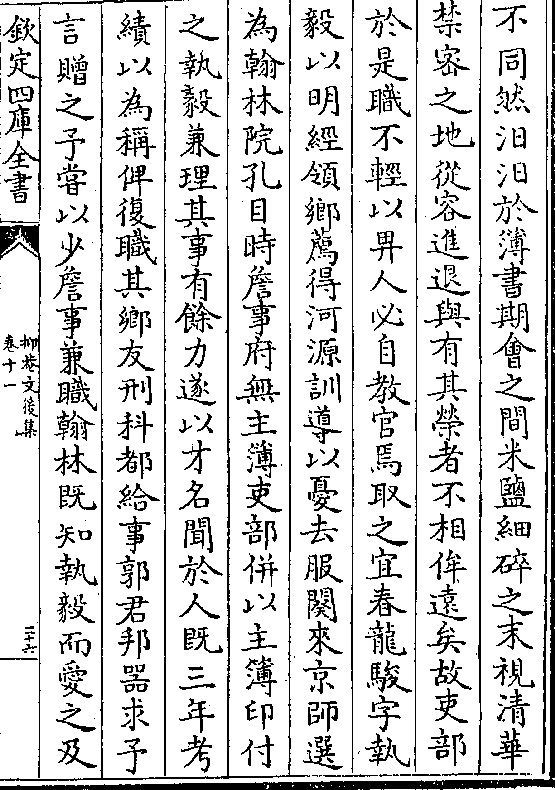 不同然汨汨於簿書期會之間米鹽細碎之末視清華
禁宻之地從容進退與有其榮者不相侔遠矣故吏部
於是職不輕以畀人必自教官焉取之宜春龍駿字執
毅以明經領鄉薦得河源訓導以憂去服闋來京師選
為翰林院孔目時詹事府無主簿吏部併以主簿印付
之執毅兼理其事有餘力遂以才名聞於人既三年考
績以為稱俾復職其鄉友刑科都給事郭君邦器求予
言贈之予嘗以少詹事兼職翰林既知執毅而愛之及
欽定四庫全書
抑菴文後集
卷十一
三十六